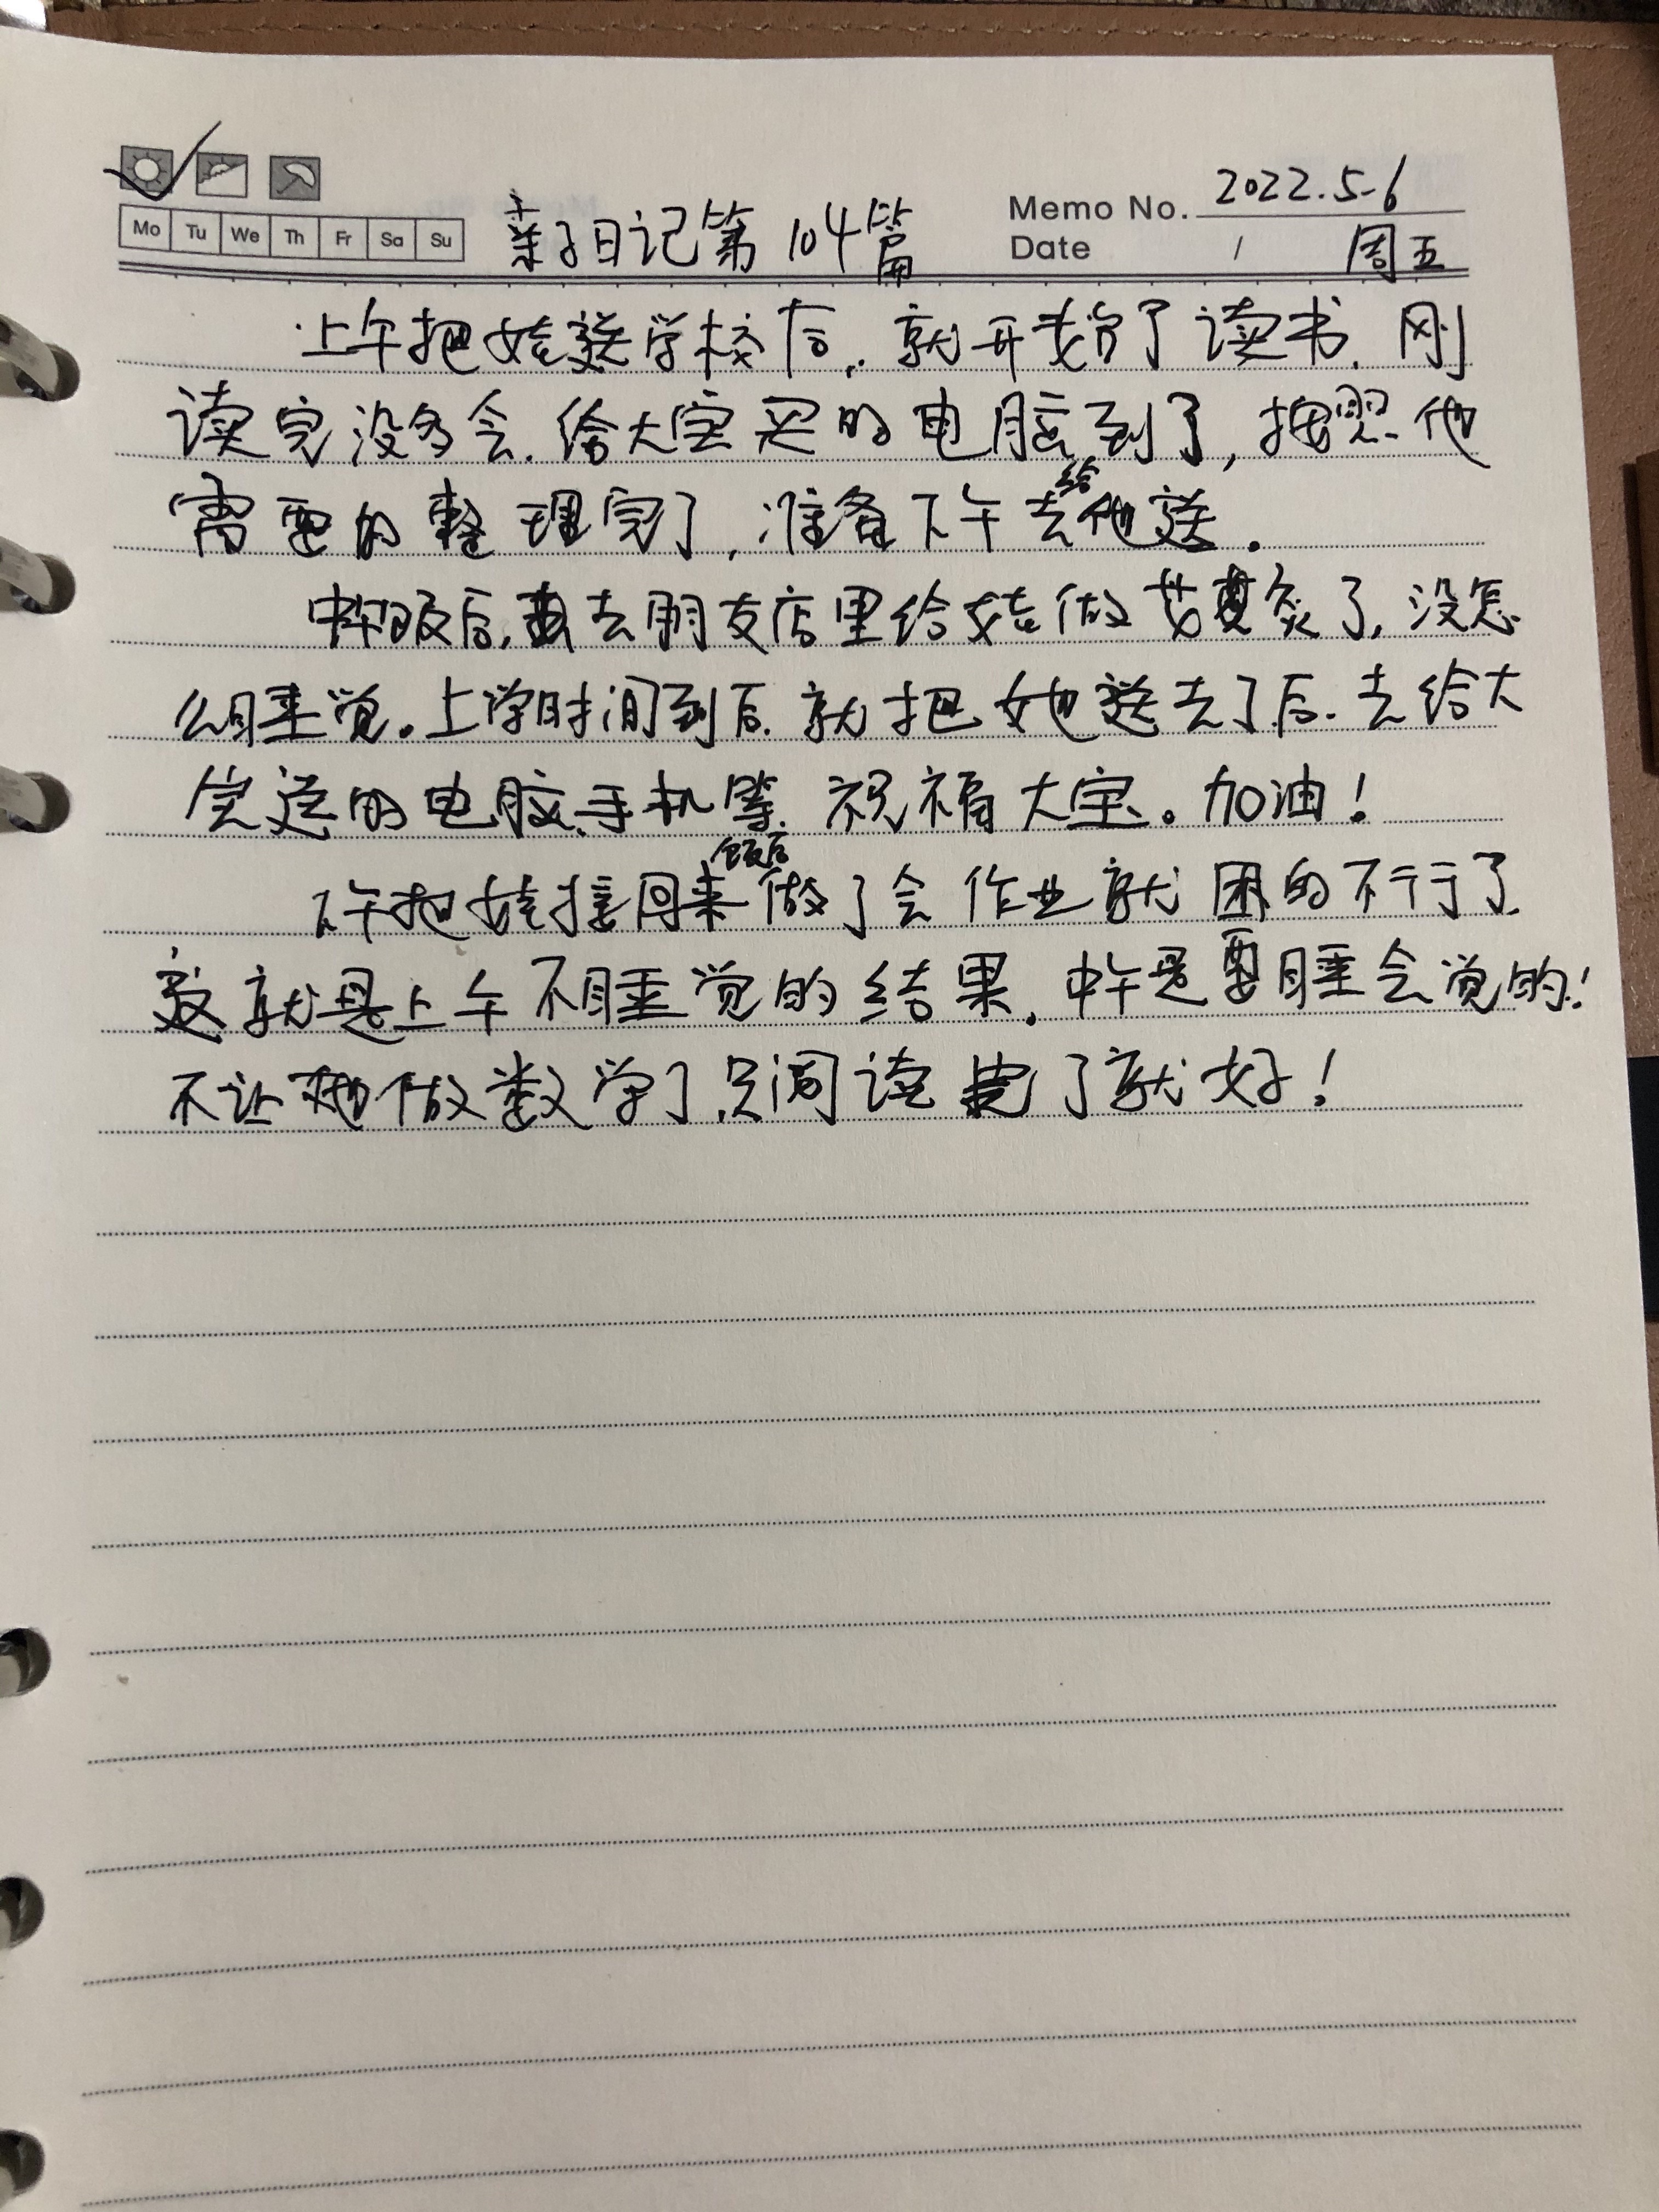 Mo Tu We Th Fr Sa Su
亲子日记第104篇
Memo No. 2022.5-6
Date / 周五
上午把娃送学校后,就开始了读书.刚
读完没多会.给大宝买的电脑到了,按照他
需要的整理完了,准备下午去给他送.
中午饭后,去朋友店里给娃做艾灸了,没怎
么睡觉。上学时间到后.就把她送去了后.去给大
宝送的电脑、手机等.祝福大宝。加油!
下午把娃接回来饭后做了会作业就困的不行了
这就是上午不睡觉的结果.中午是要睡会觉的!
不让她做数学了.只阅读完了就好!